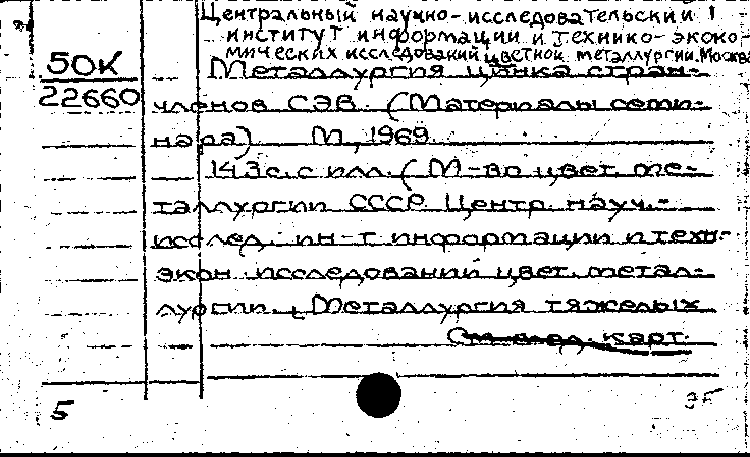 Центральный научно-исследовательский
институт информации и технико-эконо-
мических исследований цветной металлургии. Москва
50К
22660
Металлургия цинка стран-
членов СЭВ. (Материалы семи-
нара) М., 1969
143 с. с илл. (М-во цвет. ме-
таллургии СССР. Центр. науч.-
исслед. ин-т информации и техн-
экон. исследований цвет. метал-
лургии. Металлургия тяжелых
См. след. карт.
5